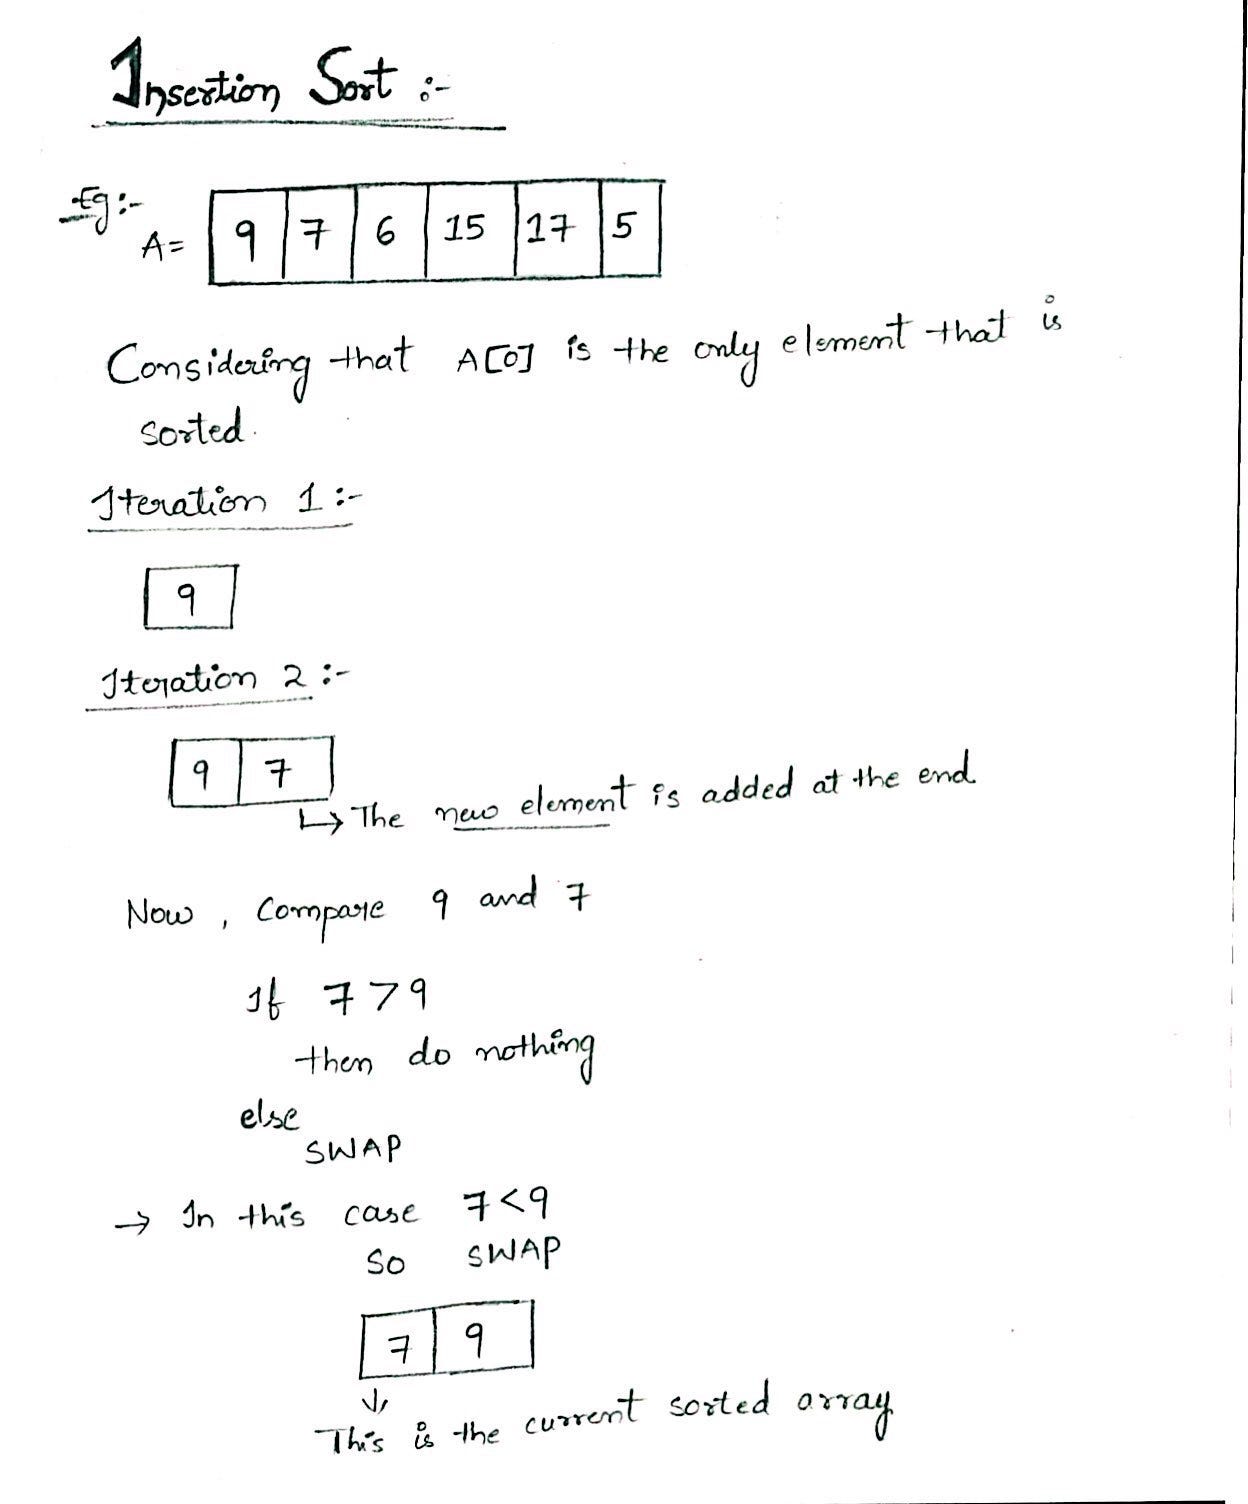 Insertion Sort :-
Eg :-
A = 9 7 6 15 17 5
Considering that A[0] is the only element that is
sorted.
Iteration 1 :-
9
Iteration 2 :-
9 7
↳ The new element is added at the end
Now , Compare 9 and 7
If 7 > 9
then do nothing
else
SWAP
→ In this case 7 < 9
So SWAP
7 9
↓
This is the current sorted array